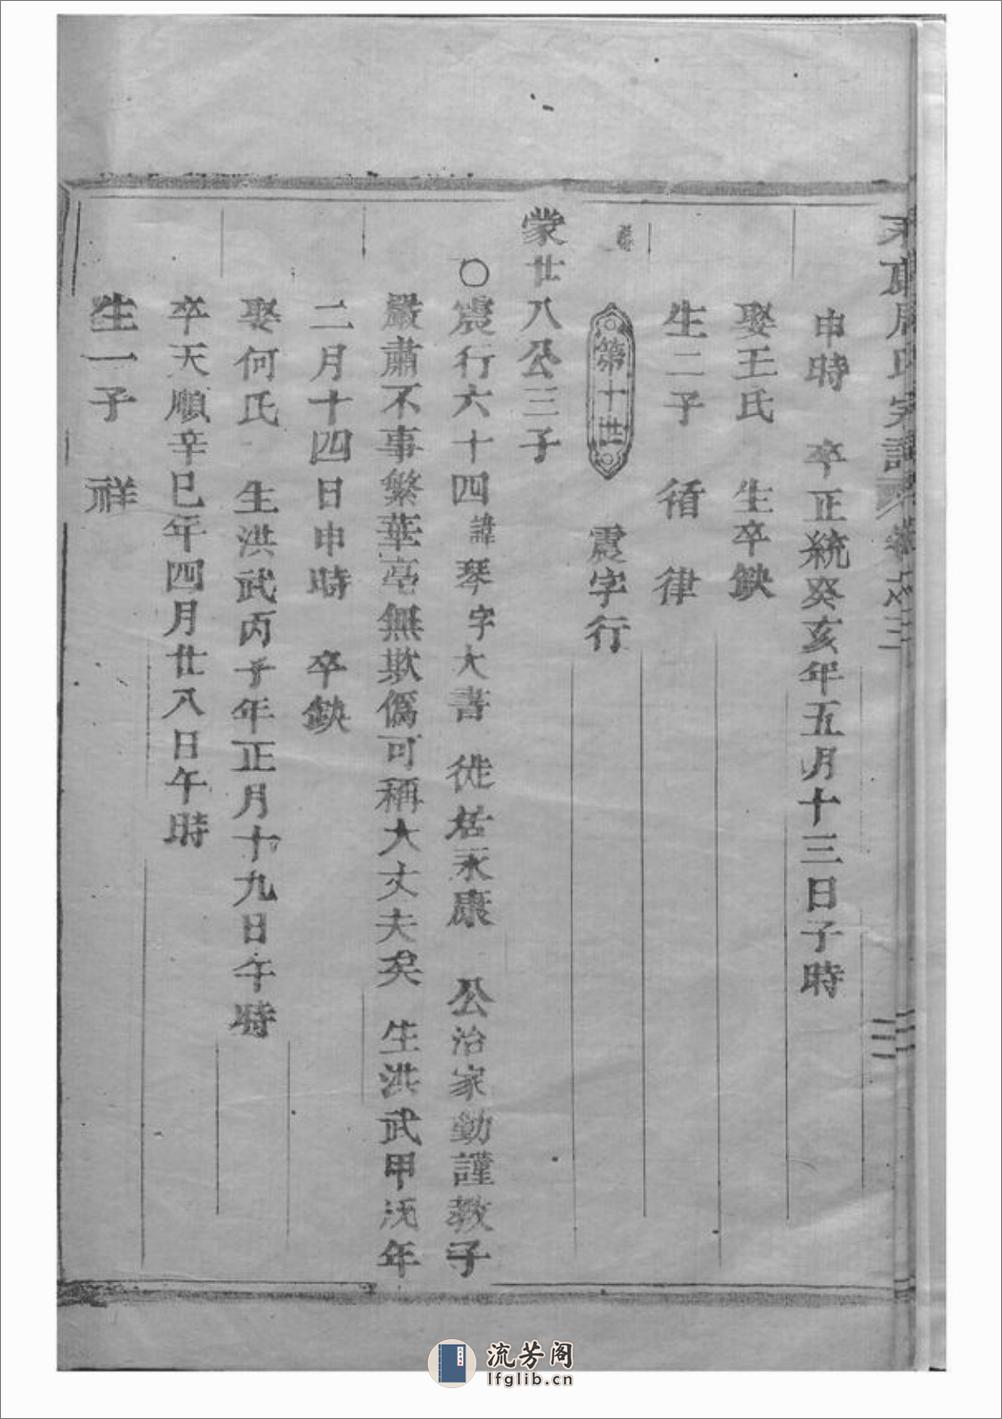 永康周氏宗譜 卷之三
申時 卒正統癸亥年五月十三日子時
娶王氏 生卒缺
生二子 循 律
第十世 震字行
蒙廿八公三子
○震行六十四諱琴字大書 徙居永康 公治家勤謹教子
嚴肅不事繁華亳無欺僞可稱大丈夫矣 生洪武甲戌年
二月十四日申時 卒缺
娶何氏 生洪武丙子年正月十九日午時
卒天順辛巳年四月廿八日午時
生一子 祥
流芳阁
lfglib.cn